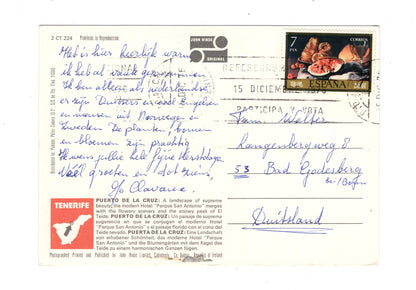 2 CT 224
Prohibida la Reproduccion.
JOHN HINDE
ORIGINAL
CORREOS
7
PTA
ESPAÑA
REFERENDUM
15 DICIEMBRE 1976
PARTICIPA Y VOTA
Het is hier heerlijk warm
ik heb al
Ik ben alleen als nederlandse
er zijn Duitsers en veel Engelsen
en mensen uit Noorwegen en
Zweden. De planten, bomen
en bloemen zijn prachtig
Ik wens jullie hele fijne Kerstdagen
Veel groeten en tot ziens,
Fam. Walter
Langenbergweg 8
53 Bad Godesberg
Duitsland
TENERIFE
PUERTO DE LA CRUZ: A landscape of supreme
beauty; the modern Hotel "Parque San Antonio" merges
with the flowery scenery and the snowy peak of El
Teide. PUERTO DE LA CRUZ: Un paisaje de suprema
sugerencia en que se conjugan el moderno Hotel
"Parque San Antonio" y el paisaje florido con el cono del
Teide nevado. PUERTO DE LA CRUZ: Eine Landschaft von
erhabener Schönheit, das moderne Hotel "Parque San
Antonio" und die Blumengärten mit dem Kegel des
Teide zu einem harmonischen Ganzen fügen.
Photographed, Printed and Published by John Hinde Limited, Cabinteely, Co. Dublin, Republic of Ireland.